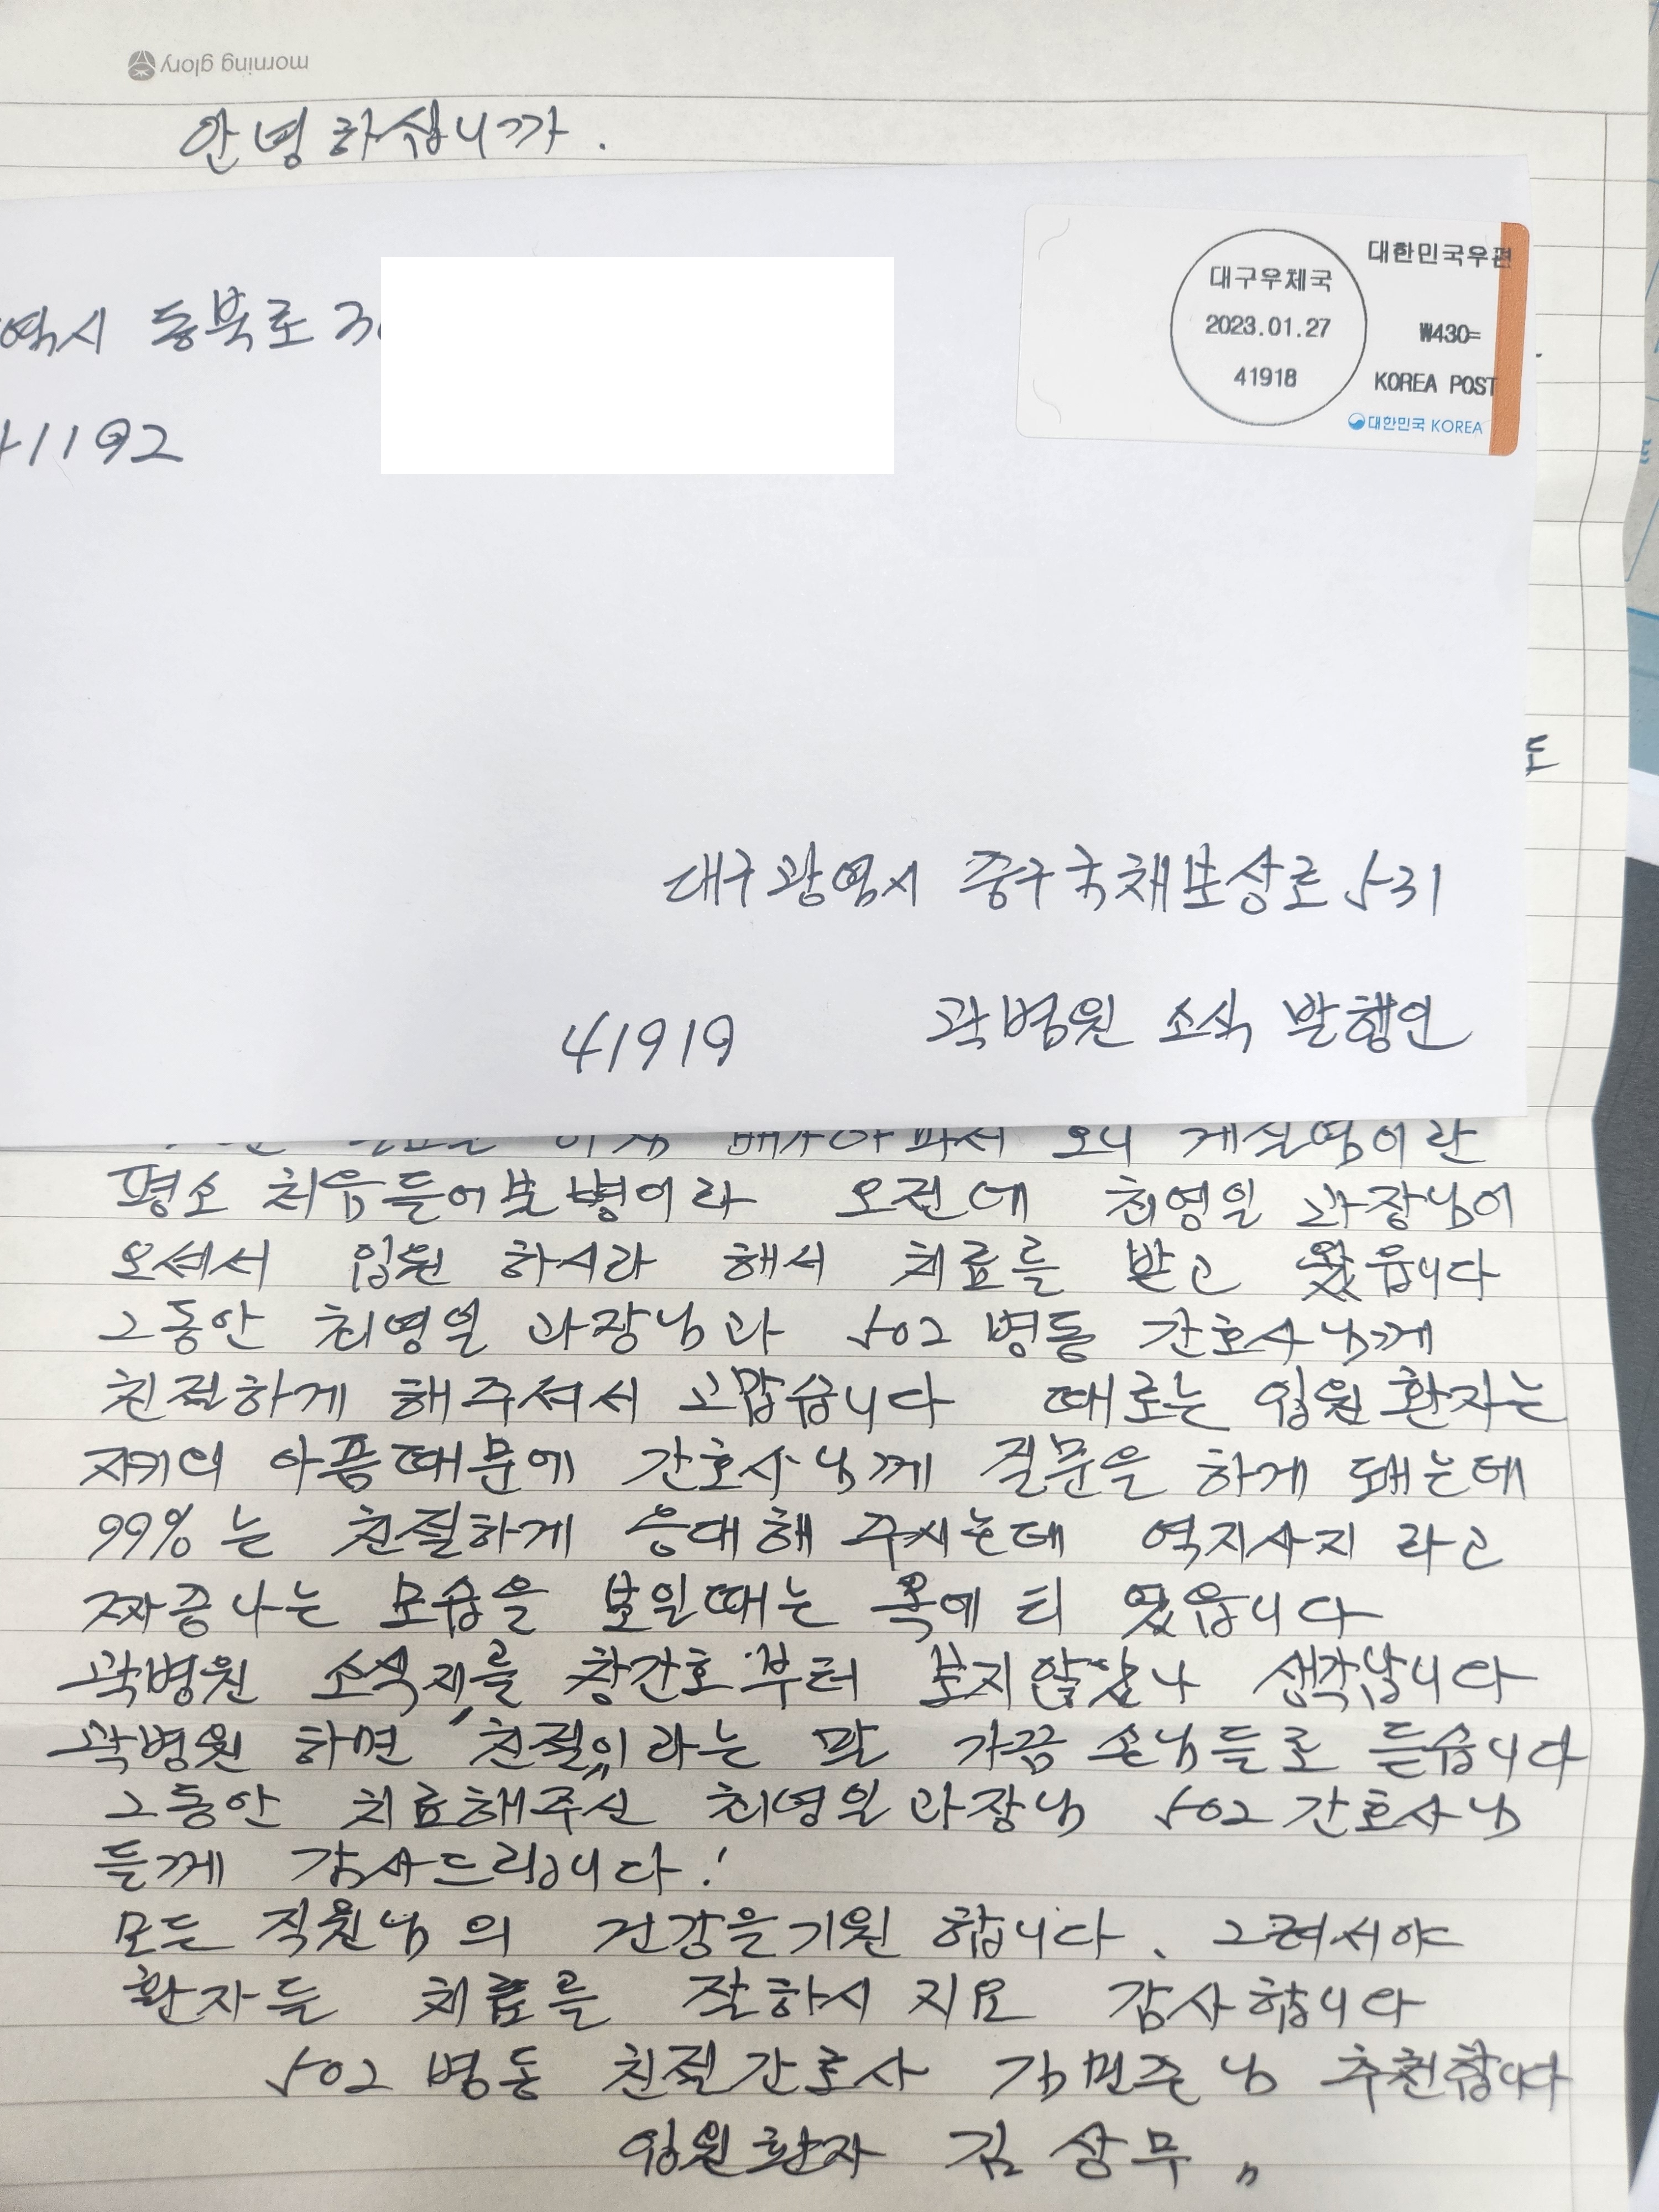 morning glory
안녕하십니까.
대구우체국
2023.01.27
41918
대한민국우편
₩430=
KOREA POST
대한민국 KOREA
역시 동북로 3
1192
도
대구광역시 중구국채보상로 531
41919 곽병원 소식 발행인
배가아파서 오니 게실염이란
평소 처음들어본병이라 오전에 최영일 과장님이
오셔서 입원 하시라 해서 치료를 받고 왔읍니다
그동안 최영일 과장님과 502 병동 간호사님께
친절하게 해주셔서 고맙습니다 때로는 입원환자는
자기의 아픔때문에 간호사님께 질문을 하게 돼는데
99%는 친절하게 응대해 주시는데 역지사지 라고
짜증나는 모습을 보일때는 옥에 티 였읍니다
곽병원 소식지를 창간호부터 보지않았나 생각납니다
곽병원 하면 "친절"이라는 말 가끔 손님들로 듣습니다
그동안 치료해주신 최영일과장님 502간호사님
들께 감사드립니다!
모든 직원님의 건강을기원 합니다. 그려서야
환자들 치료를 잘하시지요 감사합니다
502 병동 친절간호사 김민준님 추천합니다
입원환자 김상무"